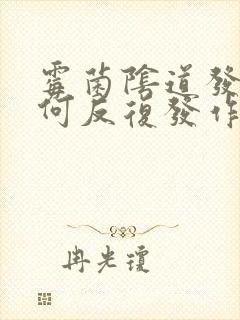 霉菌陰道發
何反復發作
冉光瓊